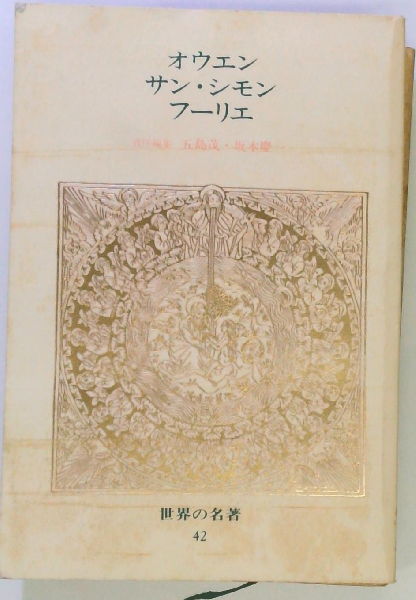 オウエン
サン・シモン
フーリエ
責任編集 五島茂・坂本慶一
世界の名著
42